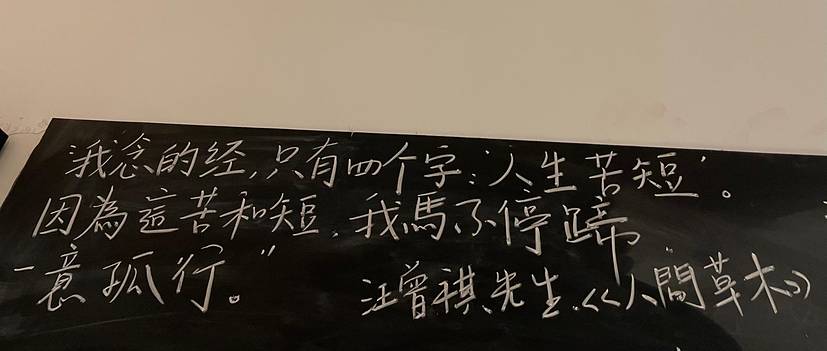 "我念的经，只有四个字：'人生苦短'。
因為這苦和短，我馬不停蹄，
一意孤行。"
汪曾祺先生.《人間草木》